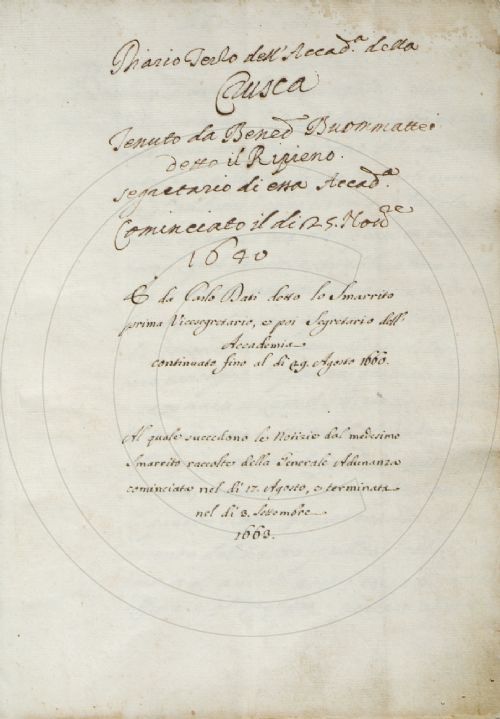 Diario Terzo dell'Accad.ª della
Crusca
Tenuto da Bened.º Buommattei
detto il Ripieno.
segretario di essa Accad.ª
Cominciato il dì 25. Nov.re
1640
E da Carlo Dati detto lo Smarrito
prima Vicesegretario, e poi Segretario dell'
Accademia
continuato fino al dì 29. Agosto 1660.
Al quale succedono le Notizie dal medesimo
Smarrito raccolte della Generale Adunanza
cominciata nel dì 17. Agosto, e terminata
nel dì 3. Settembre
1663.